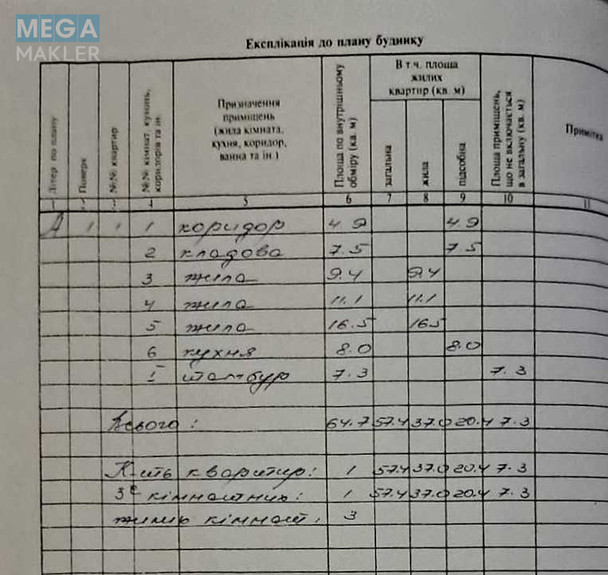 MEGA
MAKLER
Експлікація до плану будинку
Літер по плану
Поверх
№№ квартир
№№ кімнат, кухонь, коридорів та ін.
Призначення приміщень (жила кімната, кухня, коридор, ванна та ін.)
Площа по внутрішньому обміру (кв. м)
В т.ч. площа жилих квартир (кв. м)
загальна
жила
підсобна
Площа приміщень, що не включається в загальну (кв. м)
Примітка
1 2 3 4 5 6 7 8 9 10 11
А 1 1 1 коридор 4.9 4.9
2 кладова 7.5 7.5
3 жила 9.4 9.4
4 жила 11.1 11.1
5 жила 16.5 16.5
6 кухня 8.0 8.0
I тамбур 7.3 7.3
Всього: 64.7 57.4 37.0 20.4 7.3
К-сть квартир: 1 57.4 37.0 20.4 7.3
3х кімнатних: 1 57.4 37.0 20.4 7.3
жилих кімнат: 3